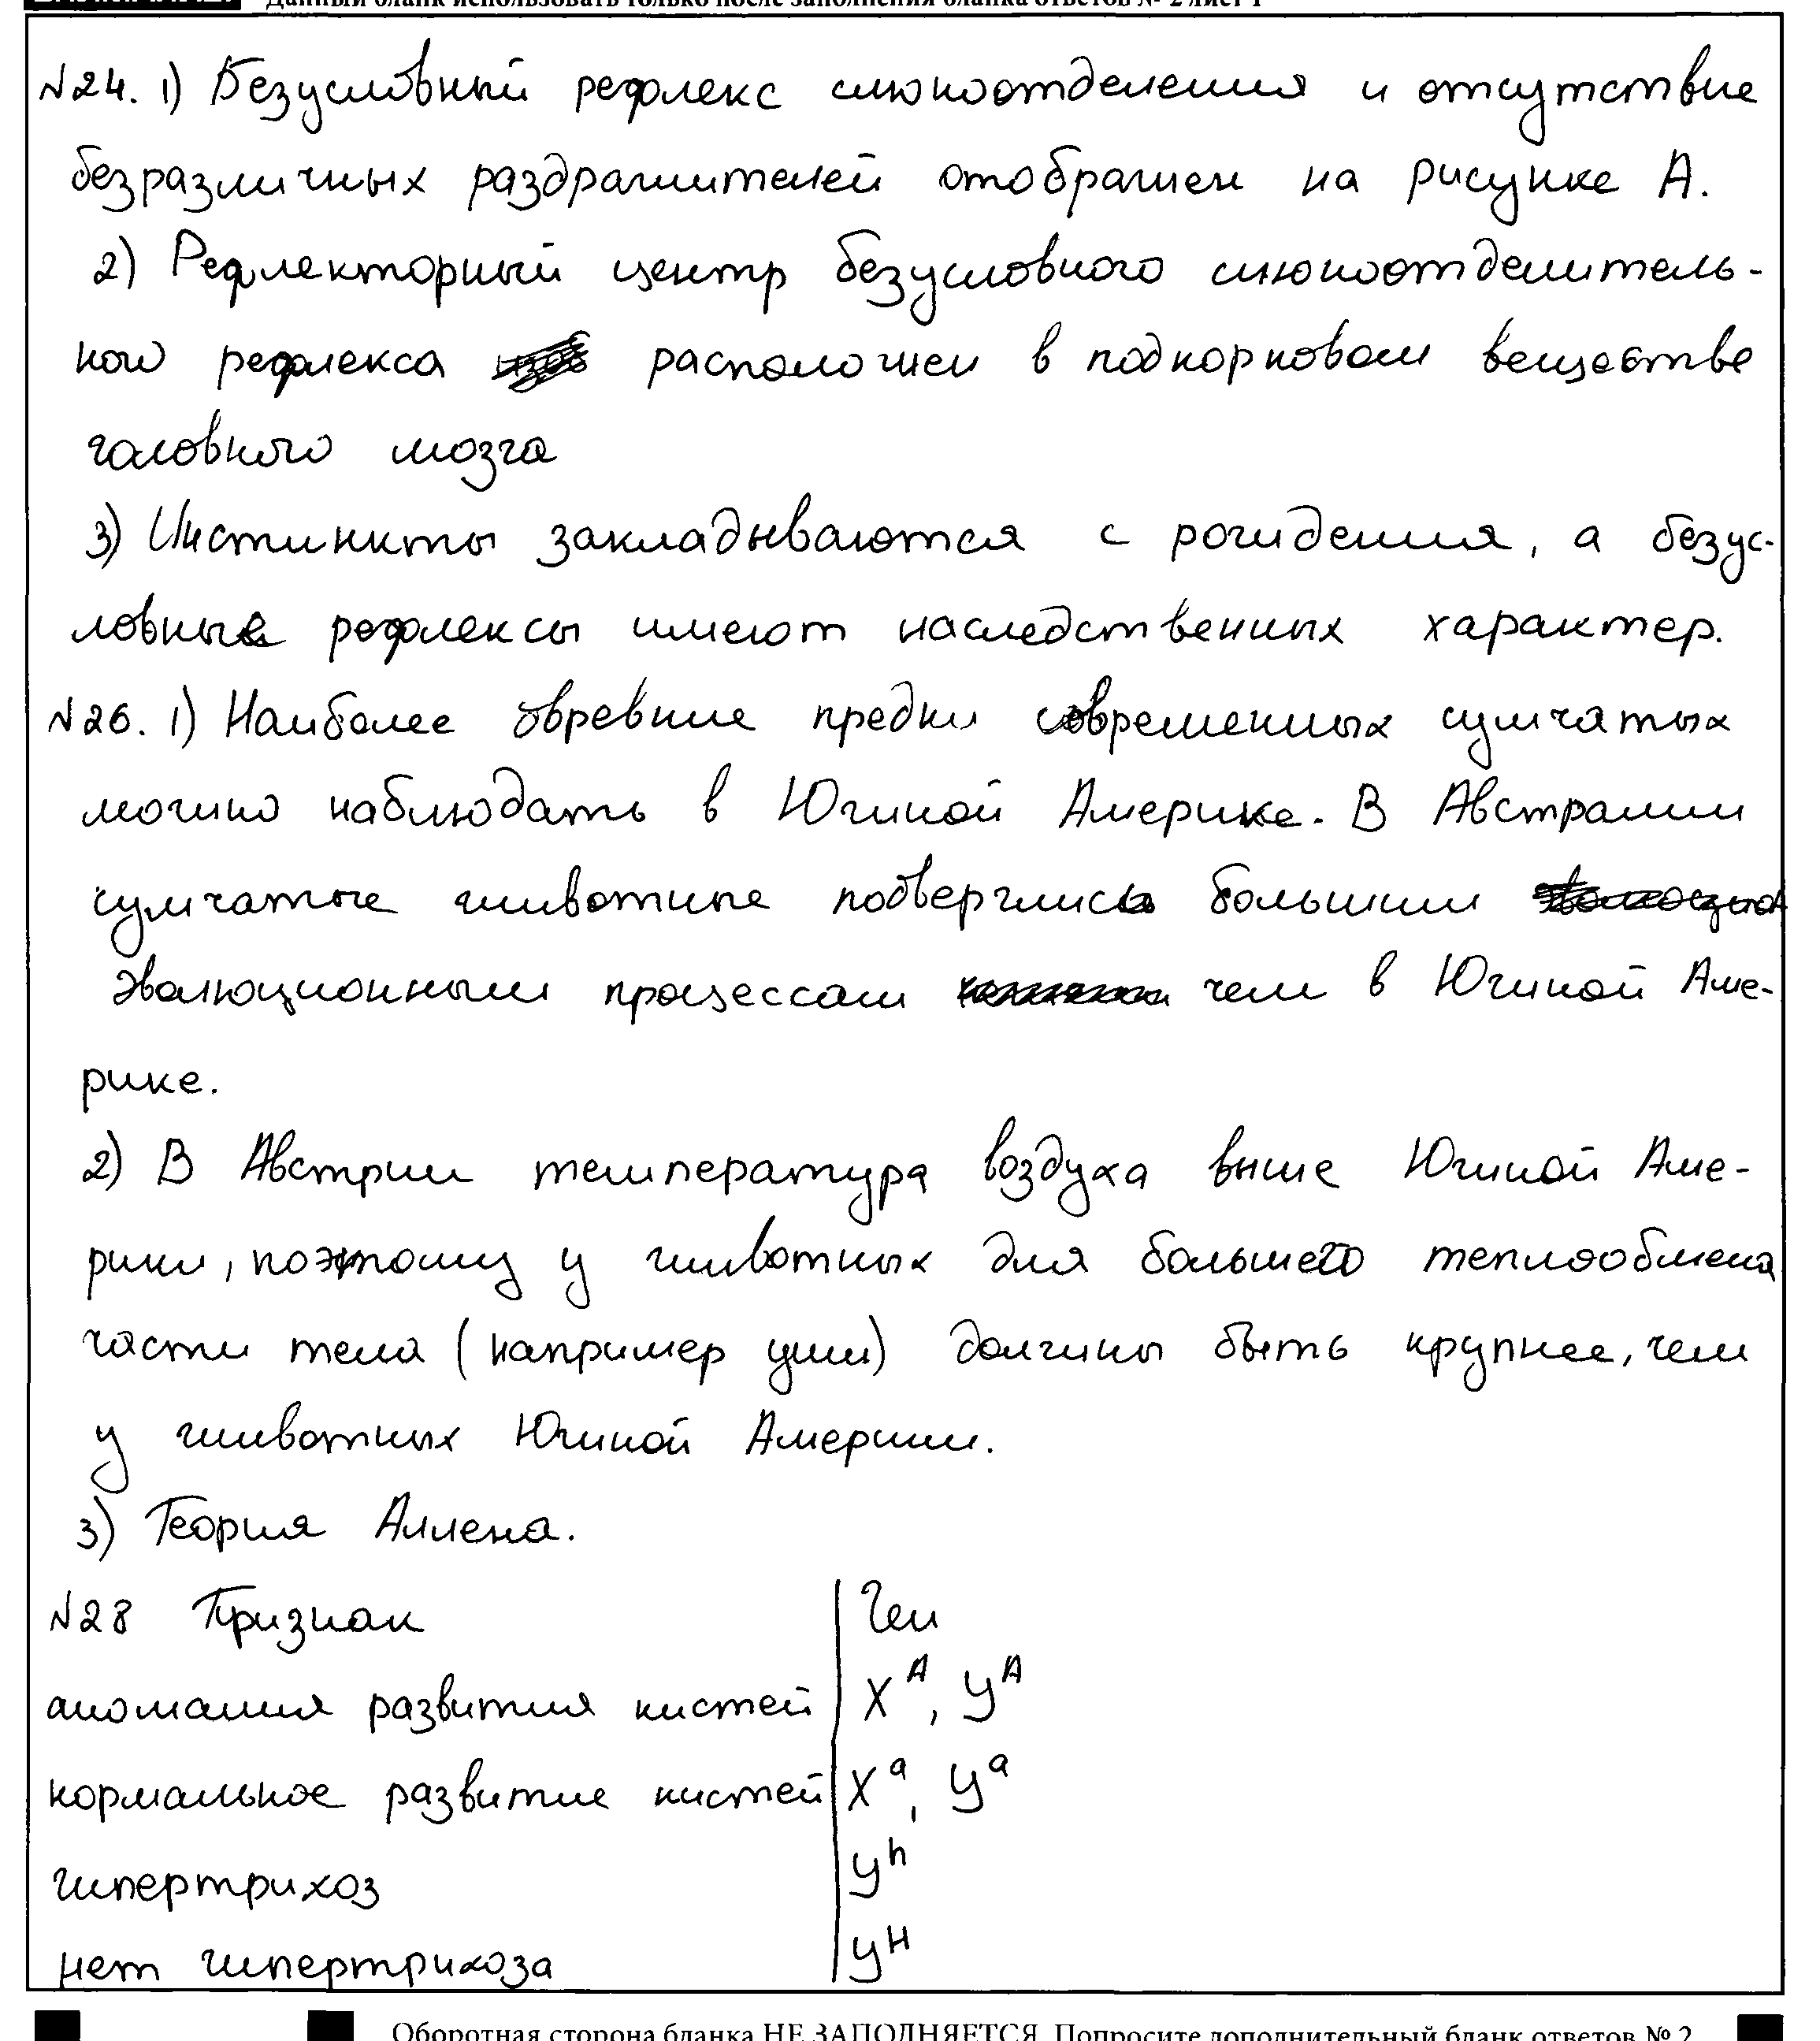 Данный бланк использовать только после заполнения бланка ответов № 2 лист 1
№24. 1) Безусловный рефлекс слюноотделения и отсутствие
безразличных раздражителей отображен на рисунке А.
2) Рефлекторный центр безусловного слюноотделитель-
ного рефлекса расположен в подкорковом веществе
головного мозга
3) Инстинкты закладываются с рождения, а безус-
ловные рефлексы имеют наследственных характер.
№26. 1) Наиболее древние предки современных сумчатых
можно наблюдать в Южной Америке. В Австралии
сумчатые животные подверглись большим
эволюционным процессам чем в Южной Аме-
рике.
2) В Австрии температура воздуха выше Южной Аме-
рики, поэтому у животных для большего теплообмена
части тела (например уши) должны быть крупнее, чем
у животных Южной Америки.
3) Теория Аллена.
№28 Признак | Ген
аномалия развития кистей | X^A, Y^A
нормальное развитие кистей | X^a, Y^a
гипертрихоз | Y^h
нет гипертрихоза | Y^H
Оборотная сторона бланка НЕ ЗАПОЛНЯЕТСЯ. Попросите дополнительный бланк ответов № 2